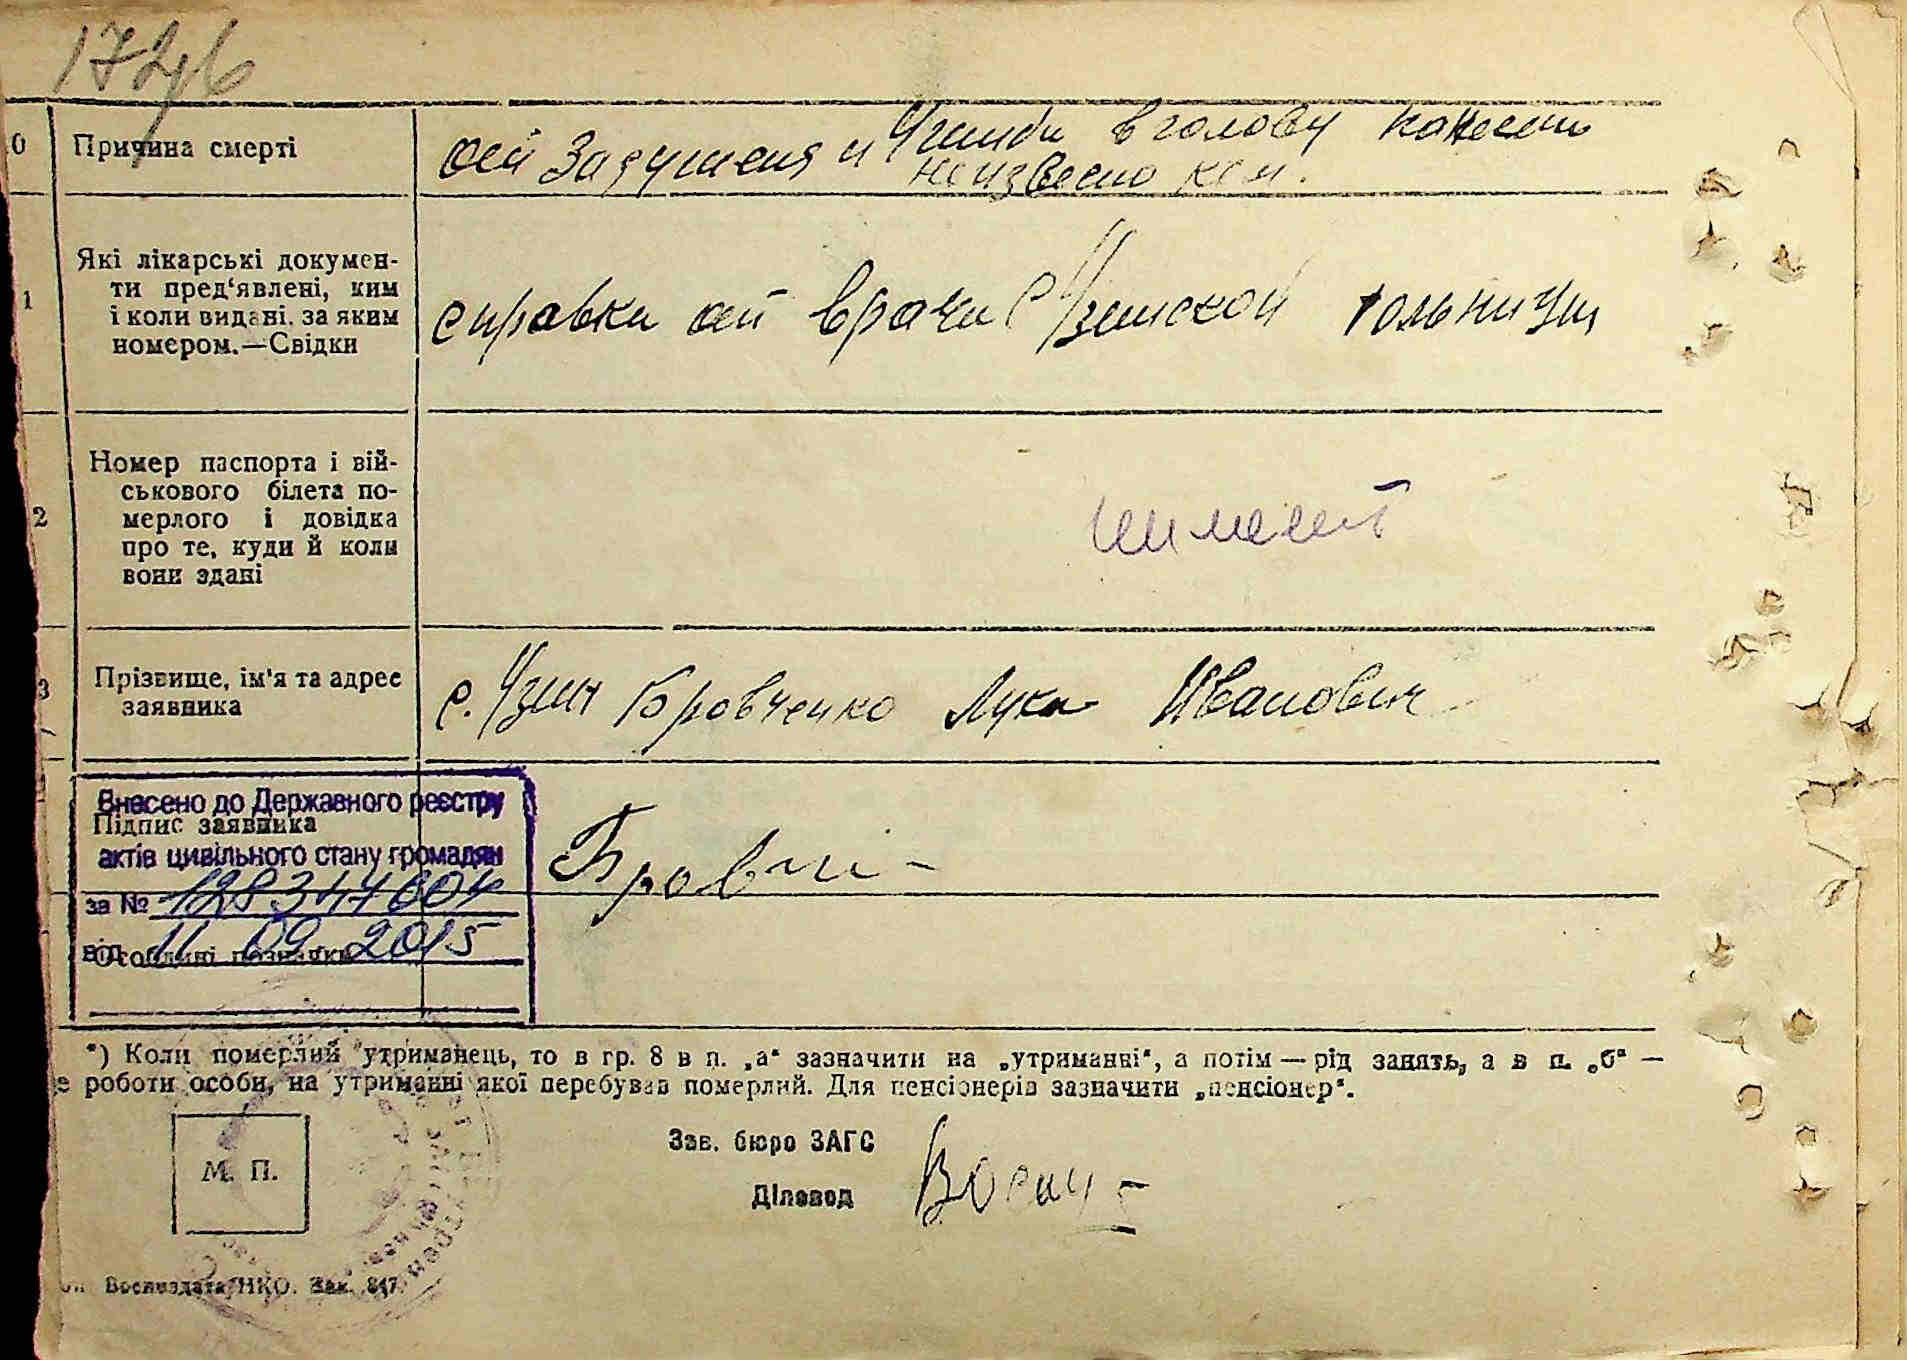 1746
10 Причина смерті
от Задушения и Ушиби в голову нанесени
неизвесно кем.
11 Які лікарські докумен-
ти пред‘явлені, ким
і коли видані, за яким
номером.—Свідки
справка от врача с Узинской больници
12 Номер паспорта і вій-
ськового білета по-
мерлого і довідка
про те, куди й коли
вони здані
3 Прізвище, ім'я та адрес
заявника
с. Узин Бровченко Лука Иванович
Внесено до Державного реєстру
Підпис заявника
актів цивільного стану громадян
за № 128344604
від 11 09 2015
Особливі позначки
*) Коли померлий утриманець, то в гр. 8 в п. „а“ зазначити на „утриманні“, а потім — рід занять, а в п. „б“ —
е роботи особи, на утриманні якої перебував померлий. Для пенсіонерів зазначити „пенсіонер“.
М. П.
Зав. бюро ЗАГС
Діловод
Воениздата НКО. Зак. 847.